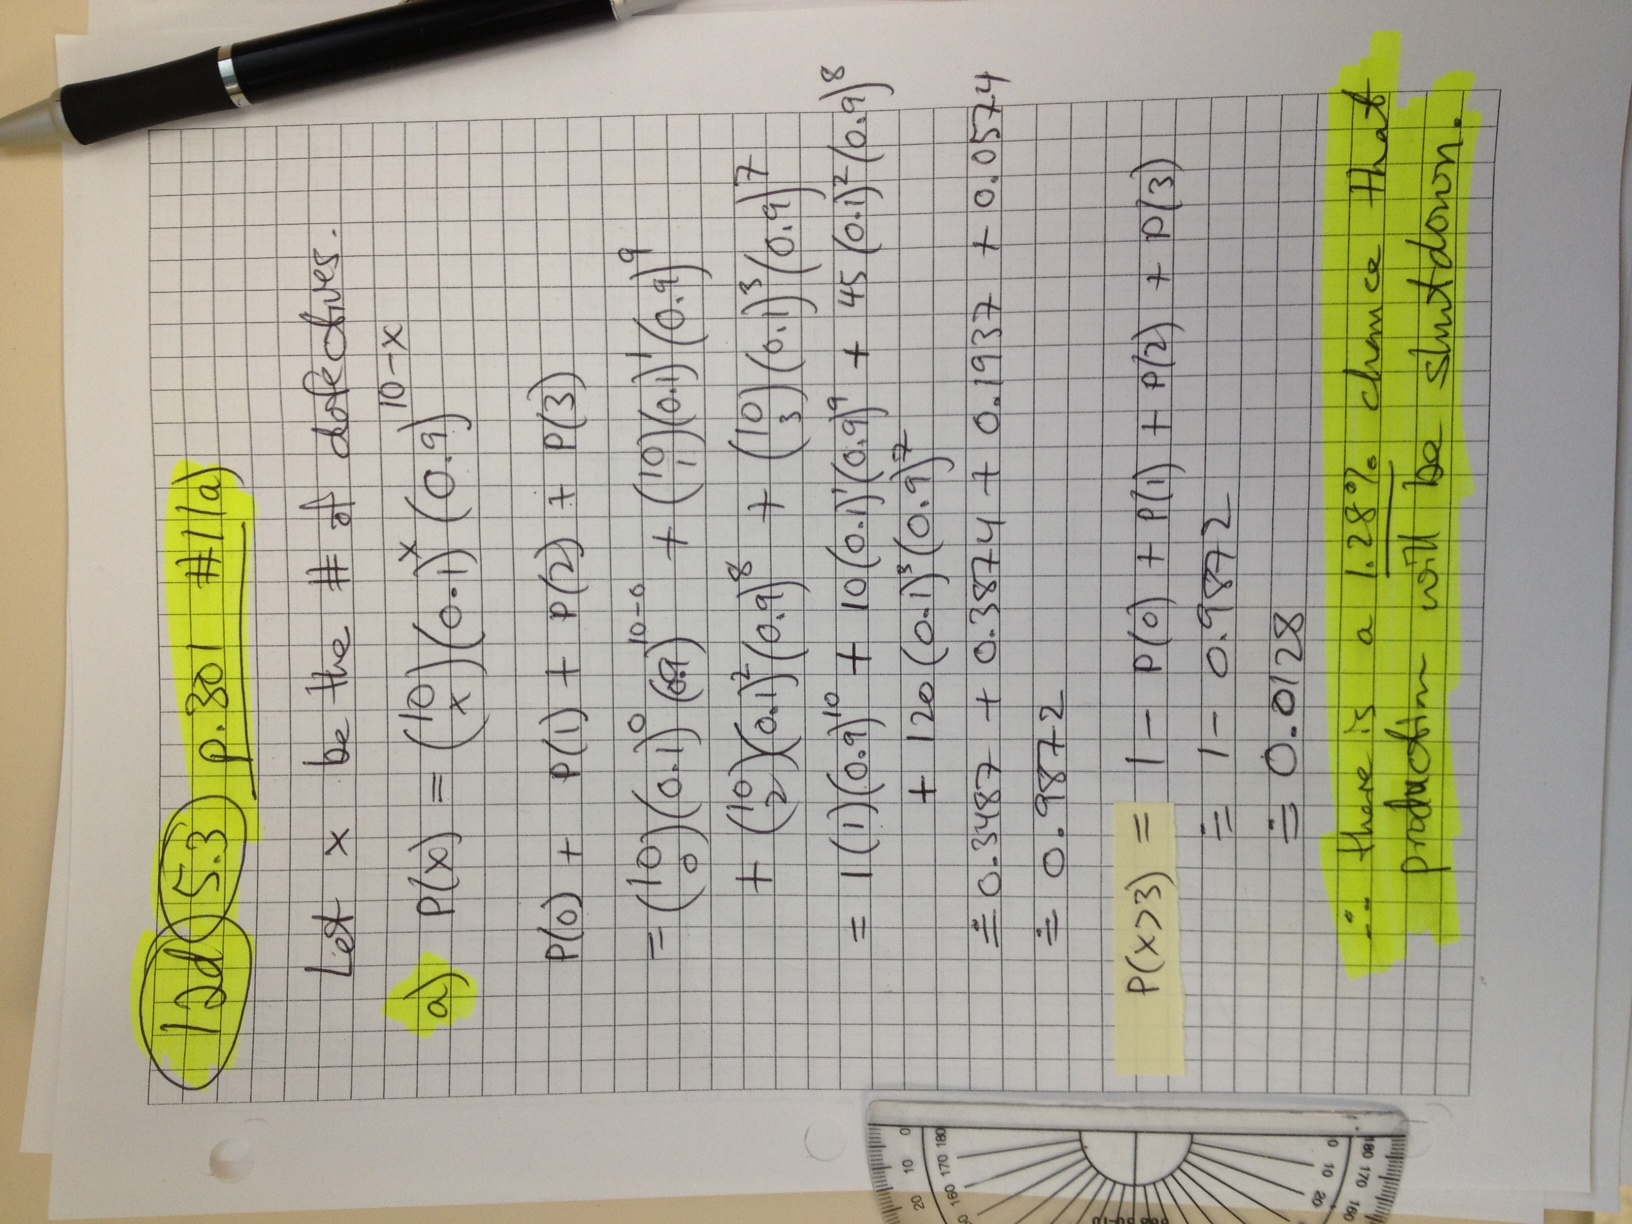 12d 5.3 p.301 #11a)
Let x be the # of defectives.
a) P(x) = (10 x)(0.1)^x (0.9)^10-x
P(0) + P(1) + P(2) + P(3)
= (10 0)(0.1)^0 (0.9)^10-0 + (10 1)(0.1)^1 (0.9)^9
+ (10 2)(0.1)^2 (0.9)^8 + (10 3)(0.1)^3 (0.9)^7
= 1(1)(0.9)^10 + 10(0.1)^1 (0.9)^9 + 45(0.1)^2 (0.9)^8
+ 120(0.1)^3 (0.9)^7
≐ 0.3487 + 0.3874 + 0.1937 + 0.0574
≐ 0.9872
P(x>3) = 1 - P(0) + P(1) + P(2) + P(3)
≐ 1 - 0.9872
≐ 0.0128
∴ there is a 1.28% chance that
production will be shutdown.
0 10 20
180 170 160 50
0 10 20
180 170 160